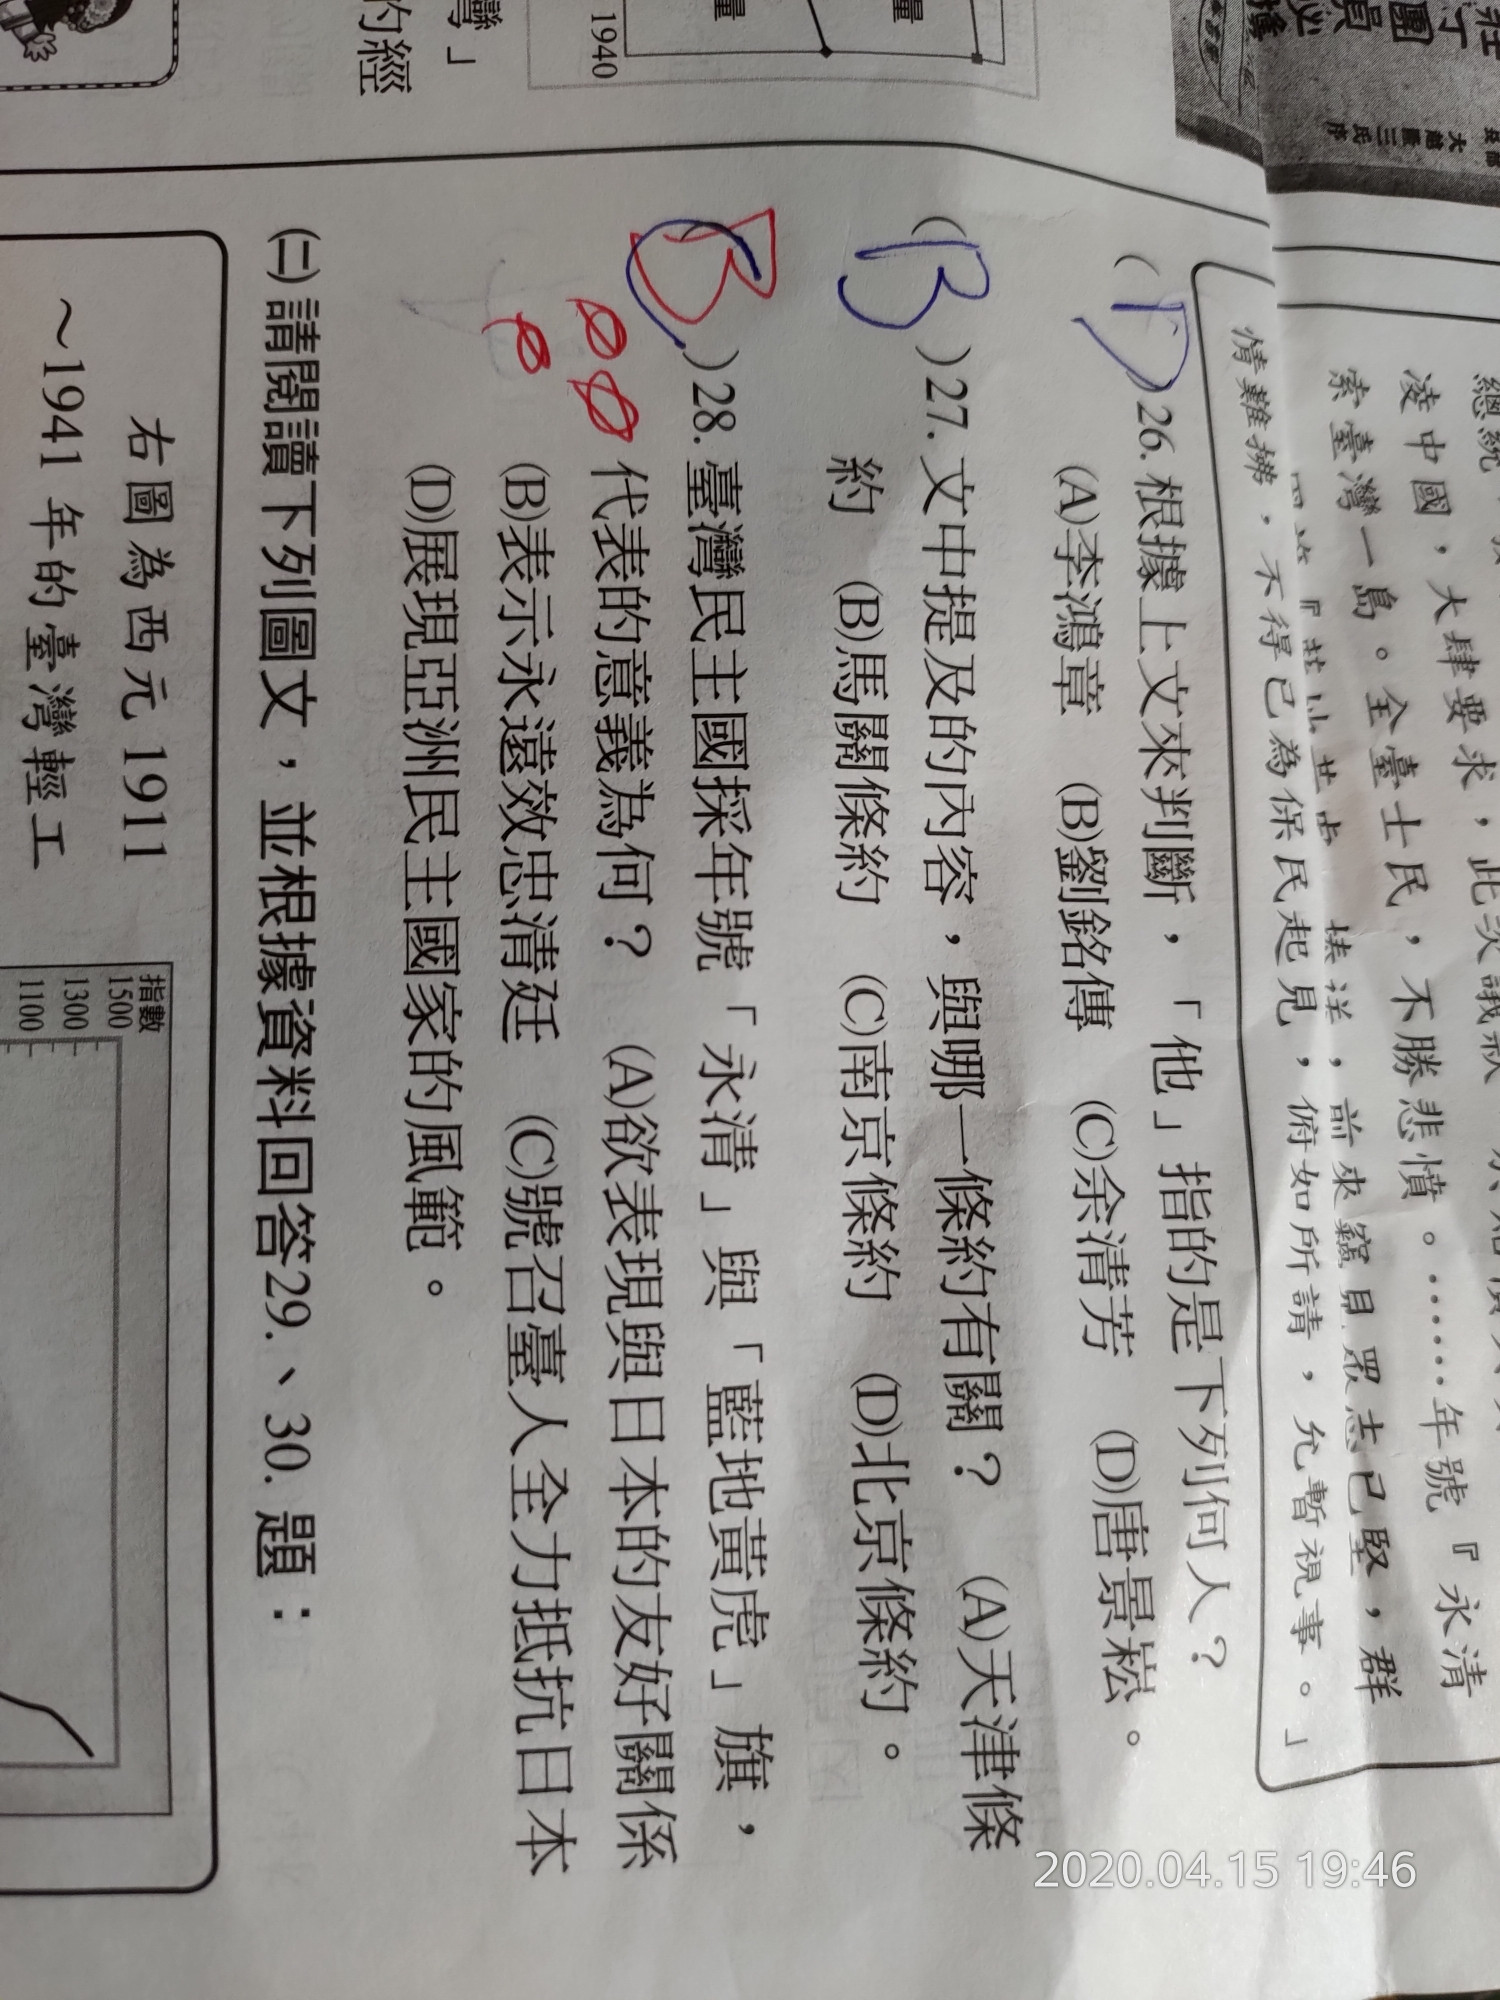 凌中國，大肆要求，此次
索臺灣一島。全臺士民，不勝悲憤。……年號『永清
前來竊見眾志已堅，群
情難拂，不得已為保民起見，俯如所請，允暫視事。」
( D )26. 根據上文來判斷，「他」指的是下列何人？
(A)李鴻章 (B)劉銘傳 (C)余清芳 (D)唐景崧。
( B )27. 文中提及的內容，與哪一條約有關？ (A)天津條
約 (B)馬關條約 (C)南京條約 (D)北京條約。
( B )28. 臺灣民主國採年號「永清」與「藍地黃虎」旗，
代表的意義為何？ (A)欲表現與日本的友好關係
(B)表示永遠效忠清廷 (C)號召臺人全力抵抗日本
(D)展現亞洲民主國家的風範。
㈡請閱讀下列圖文，並根據資料回答29.、30. 題：
右圖為西元 1911
～1941 年的臺灣輕工
指數
1500
1300
1100
1940
量
量
灣」
的經
壯丁
團員
必攜
2020.04.15 19:46